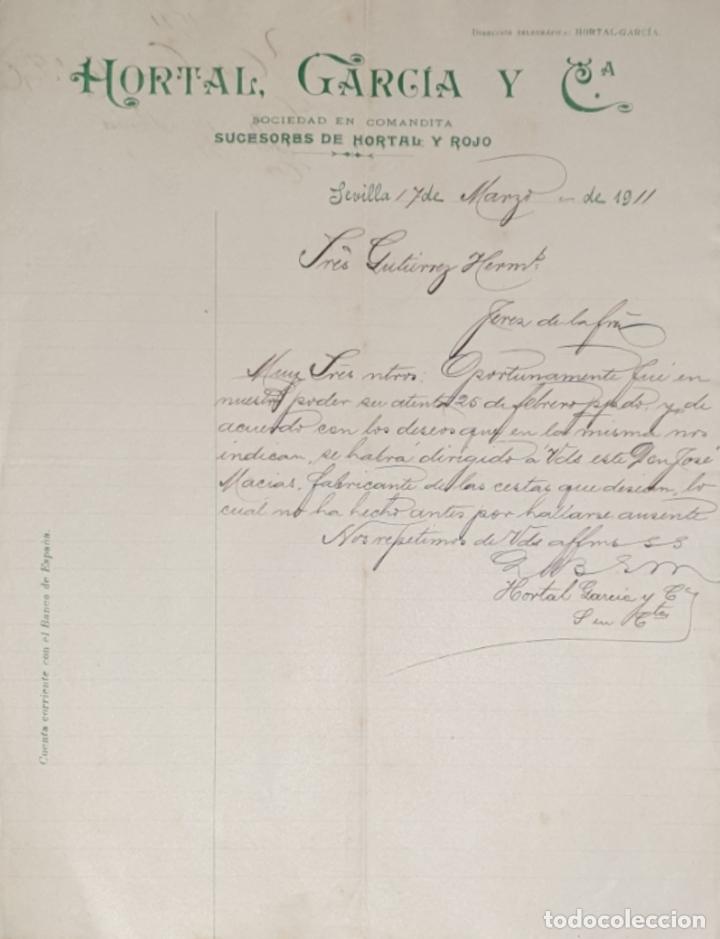 Dirección telegráfica: HORTAL-GARCÍA.
HORTAL, GARCÍA Y C.A
SOCIEDAD EN COMANDITA
SUCESORES DE HORTAL Y ROJO
Sevilla 17 de Marzo de 1911
Sres Gutiérrez Herms.
Jerez de la fra
Muy Sres ntros: Oportunamente fué en
nuestro poder su atenta 25 de febrero ppdo, y de
acuerdo con los deseos que en la misma nos
indican, se habrá dirigido á Vds este Don José
Macias, fabricante de las cestas que desean, lo
cual no ha hecho antes por hallarse ausente
Nos repetimos de Vds affmos S S
Q L B S M
Hortal Garcia y Ca
S en Cta
Cuenta corriente con el Banco de España.
todocoleccion
todocoleccion.net